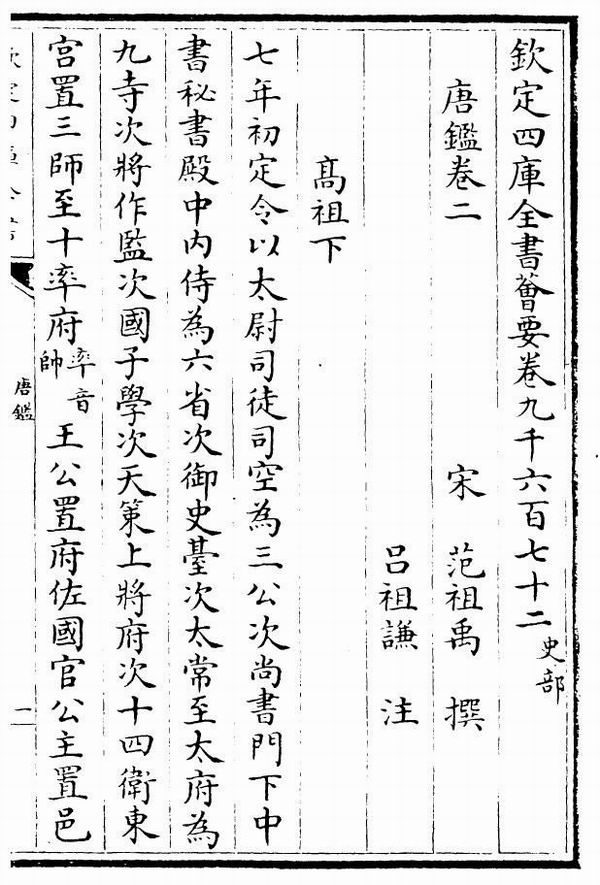 欽定四庫全書薈要卷九千六百七十二 史部
唐鑑卷二
宋 范祖禹 撰
呂祖謙 注
髙祖下
七年初定令以太尉司徒司空為三公次尚書門下中
書秘書殿中内侍為六省次御史臺次太常至太府為
九寺次將作監次國子學次天策上將府次十四衛東
宫置三師至十率府率音帥王公置府佐國官公主置邑
唐鑑